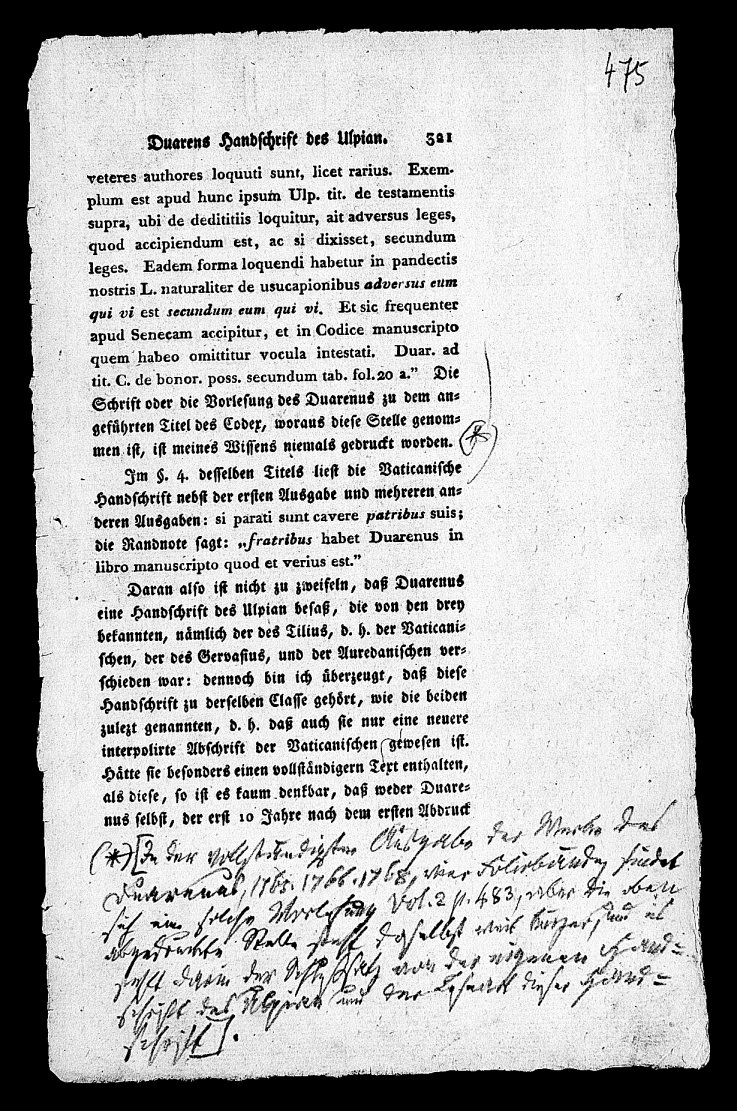 475
Duarens Handschrift des Ulpian. 321
veteres authores loquuti sunt, licet rarius. Exem-
plum est apud hunc ipsum Ulp. tit. de testamentis
supra, ubi de dedititiis loquitur, ait adversus leges,
quod accipiendum est, ac si dixisset, secundum
leges. Eadem forma loquendi habetur in pandectis
nostris L. naturaliter de usucapionibus adversus eum
qui vi est secundum eum qui vi. Et sic frequenter
apud Senecam accipitur, et in Codice manuscripto
quem habeo omittitur vocula intestati. Duar. ad
tit. C. de bonor. poss. secundum tab. fol. 20 a.” Die
Schrift oder die Vorlesung des Duarenus zu dem an-
geführten Titel des Codex, woraus diese Stelle genom-
men ist, ist meines Wissens niemals gedruckt worden. (*)
Im §. 4. desselben Titels liest die Vaticanische
Handschrift nebst der ersten Ausgabe und mehreren an-
deren Ausgaben: si parati sunt cavere patribus suis;
die Randnote sagt: „fratribus habet Duarenus in
libro manuscripto quod et verius est.”
Daran also ist nicht zu zweifeln, daß Duarenus
eine Handschrift des Ulpian besaß, die von den drey
bekannten, nämlich der des Tilius, d. h. der Vaticani-
schen, der des Gervasius, und der Auredanischen ver-
schieden war: dennoch bin ich überzeugt, daß diese
Handschrift zu derselben Classe gehört, wie die beiden
zulezt genannten, d. h. daß auch sie nur eine neuere
interpolirte Abschrift der Vaticanischen gewesen ist.
Hätte sie besonders einen vollständigern Text enthalten,
als diese, so ist es kaum denkbar, daß weder Duare-
nus selbst, der erst 10 Jahre nach dem ersten Abdruck
(*) [In der vollständigsten Ausgabe der Werke des
Duarenus, 1765. 1766. 1768, vier Foliobände, findet
sich eine solche Vorlesung Vol. 2 p. 483, aber die oben
abgedruckte Stelle steht daselbst weit kürzer, und es
fehlt darin der Schlußsatz von der eigenen Hand=
schrift des Ulpian und der Lesart dieser Hand=
schrift].